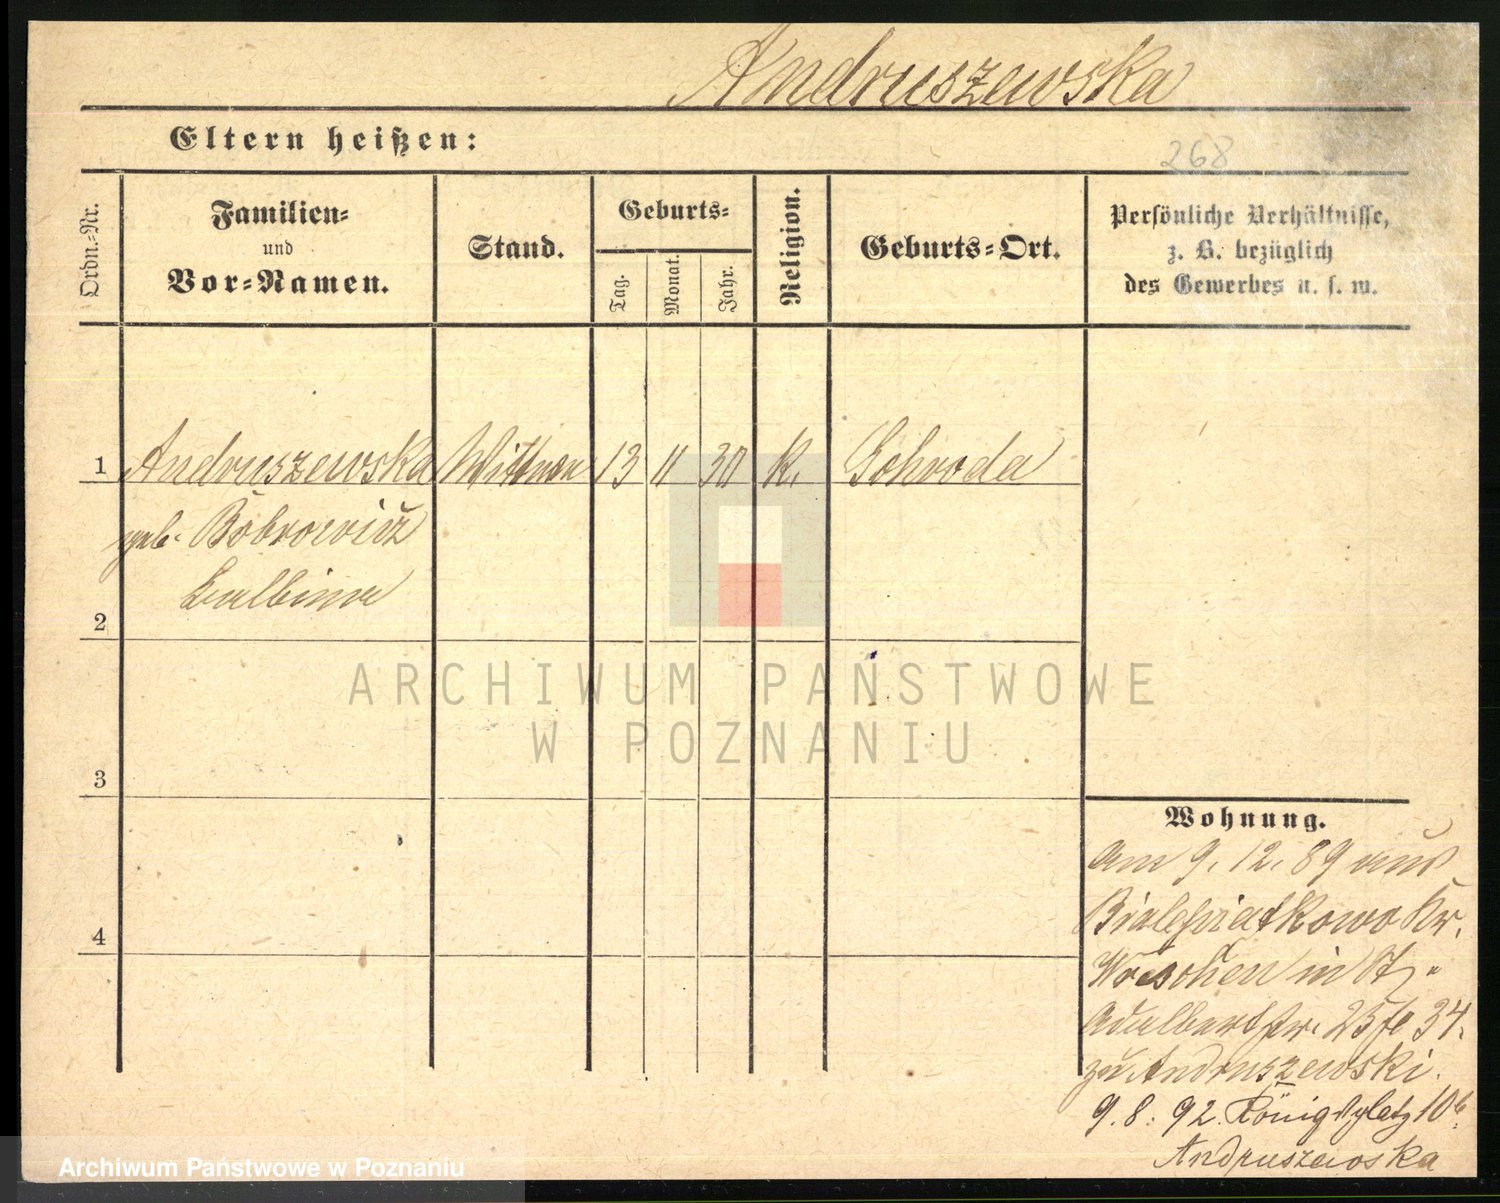 Andruszewska
Eltern heißen:
268
Ordn.-Nr.
Familien-
und
Vor-Namen.
Stand.
Geburts-
Tag.
Monat.
Jahr.
Religion.
Geburts-Ort.
Persönliche Verhältnisse,
z. B. bezüglich
des Gewerbes u. s. w.
1 Andruszewska 13 11 30 K. Schroda
geb. Bobrowicz
Balbina
2
3
4
ARCHIWUM PAŃSTWOWE
W POZNANIU
Wohnung.
Am 9. 12. 89 aus
Kr.
Wreschen in St.
Adalbertstr. 25 34.
zu Andruszewski.
9. 8. 92. Königsplatz 10
Andruszewska
Archiwum Państwowe w Poznaniu